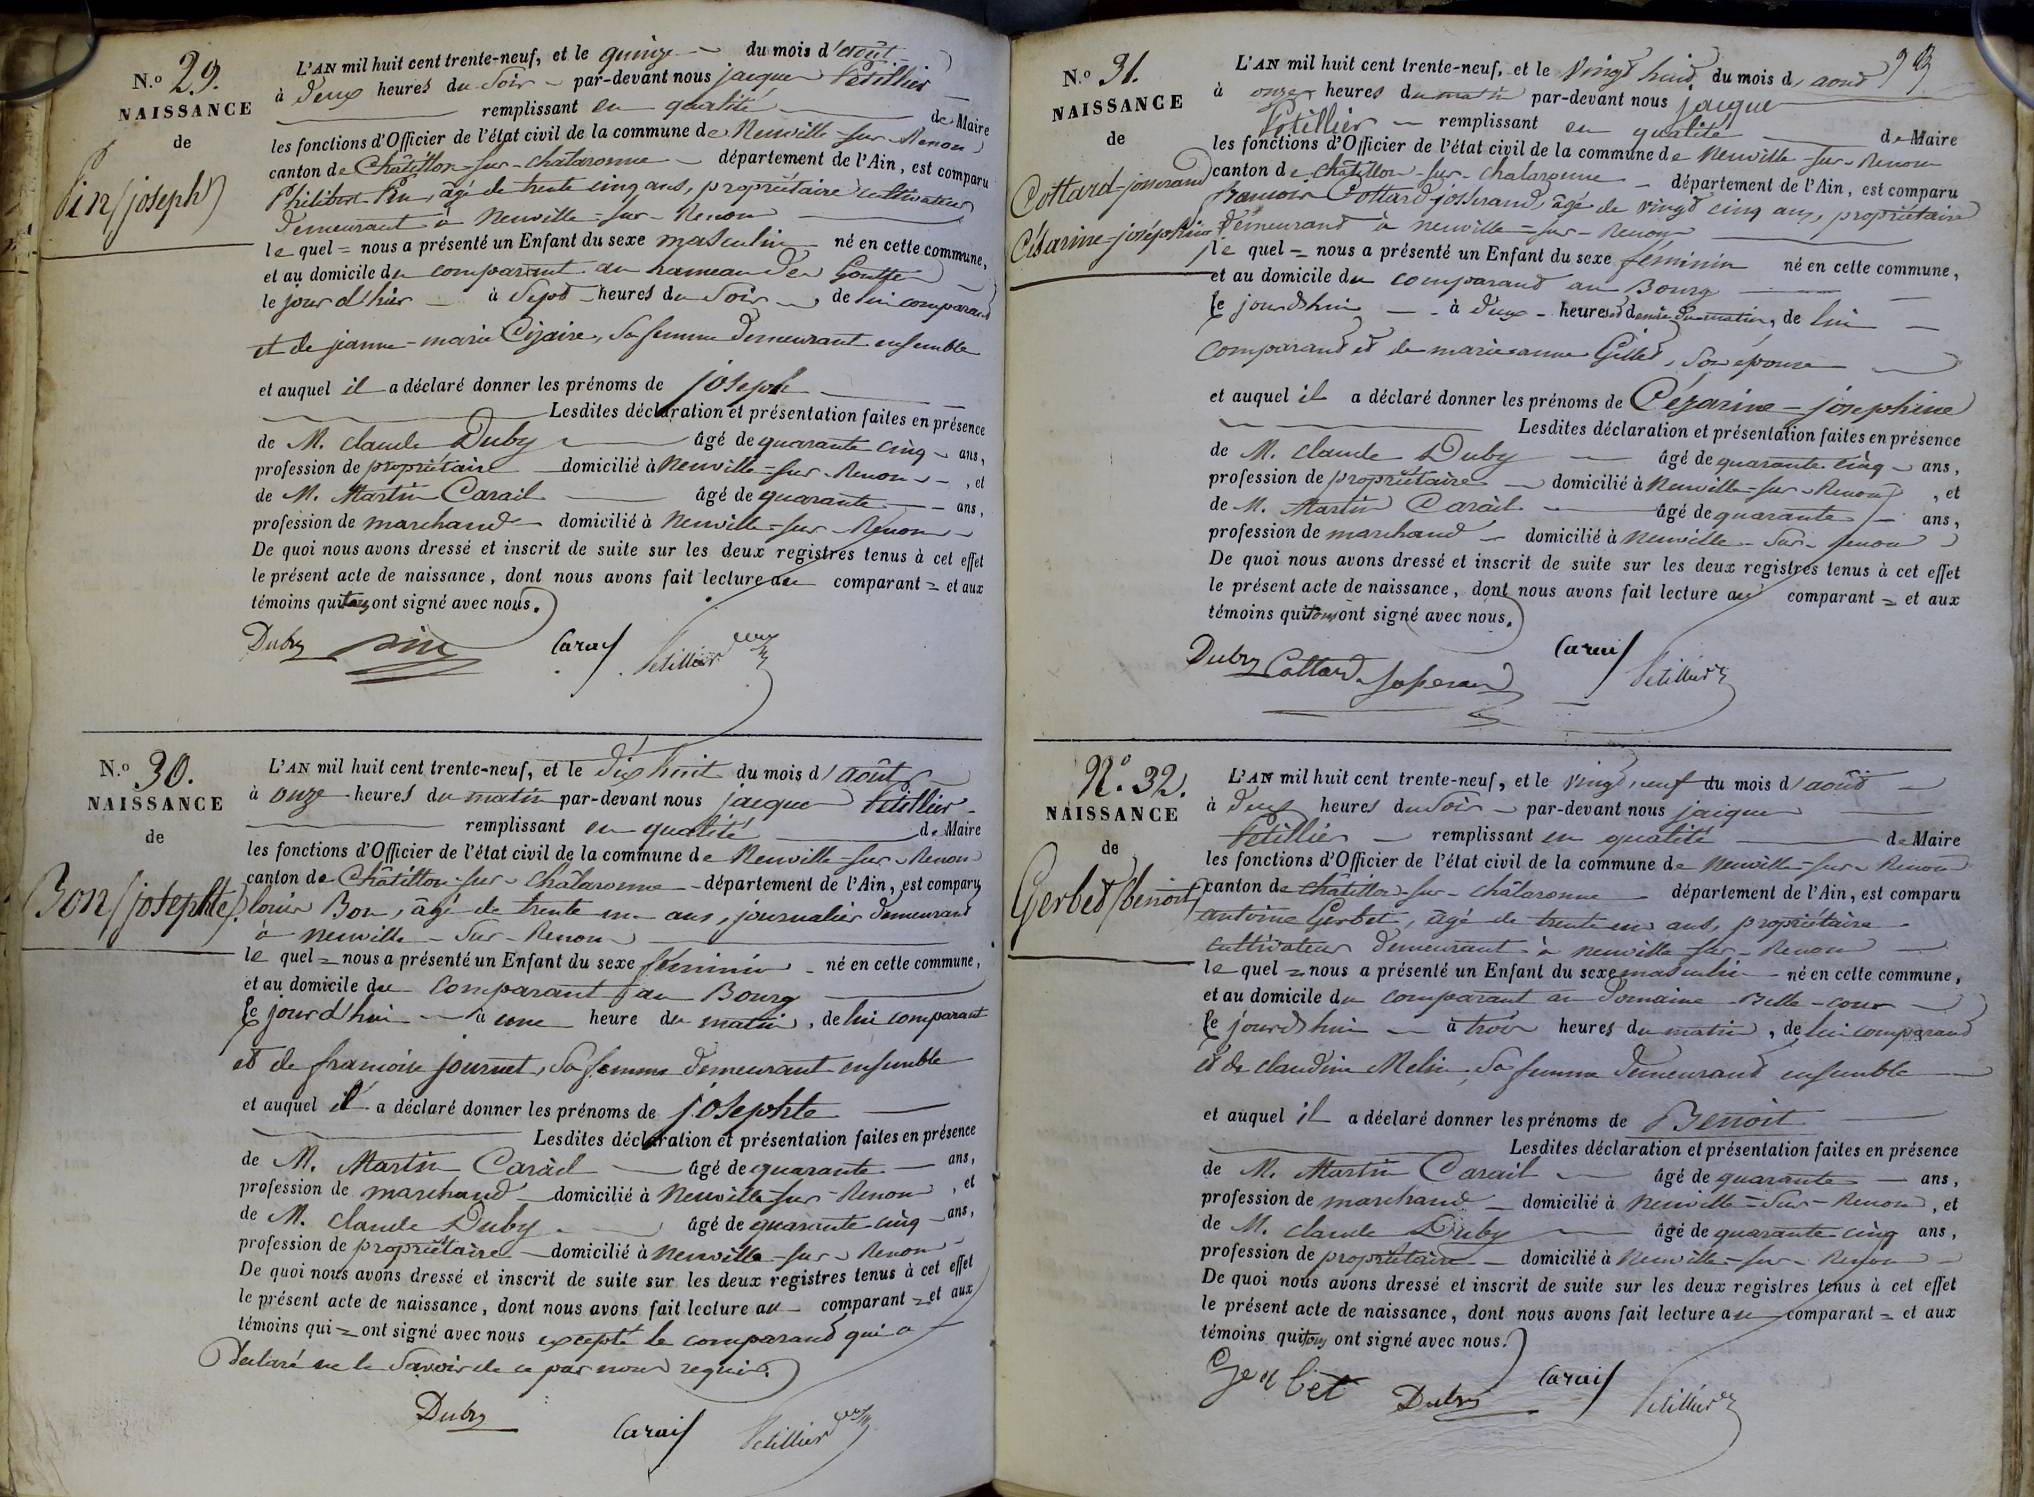 N.o 29.
NAISSANCE
de
Pin (joseph)
L'AN mil huit cent trente-neuf, et le quinze du mois d'août
à deux heures du soir par-devant nous jacques Petillier
remplissant en qualité de Maire
les fonctions d'Officier de l'état civil de la commune de Neuville-sur-Renon
canton de Châtillon-sur-Chalaronne département de l'Ain, est comparu
Philibert Pin, âgé de trente cinq ans, propriétaire cultivateur
demeurant à Neuville-sur-Renon
le quel = nous a présenté un Enfant du sexe masculin né en cette commune,
et au domicile du comparant au hameau des Goutte
le jour d'hier à Sept heures du Soir, de lui comparant
et de jeanne-marie Cizaire, Sa femme demeurant ensemble
et auquel il a déclaré donner les prénoms de joseph
Lesdites déclaration et présentation faites en présence
de M. claude Duby âgé de quarante cinq ans,
profession de propriétaire domicilié à Neuville-sur-Renon, et
de M. Martin Carail âgé de quarante ans,
profession de marchand domicilié à Neuville-sur-Renon
De quoi nous avons dressé et inscrit de suite sur les deux registres tenus à cet effet
le présent acte de naissance, dont nous avons fait lecture au comparant = et aux
témoins qui tous ont signé avec nous.
Duby pin Carail Petillier
N.o 30.
NAISSANCE
de
Bon (josephte)
L'AN mil huit cent trente-neuf, et le dix huit du mois d'août
à onze heures du matin par-devant nous jacques Petillier
remplissant en qualité de Maire
les fonctions d'Officier de l'état civil de la commune de Neuville-sur-Renon
canton de Châtillon-sur-Chalaronne département de l'Ain, est comparu
louis Bon, âgé de trente un ans, journalier demeurand
à Neuville-Sur-Renon
le quel = nous a présenté un Enfant du sexe féminin né en cette commune,
et au domicile du Comparant au Bourg
le jour d'hui à une heure du matin, de lui comparant
et de francoise journet, Sa femme demeurant ensemble
et auquel il a déclaré donner les prénoms de josephte
Lesdites déclaration et présentation faites en présence
de M. Martin Carail âgé de quarante ans,
profession de marchand domicilié à Neuville-sur-Renon, et
de M. claude Duby âgé de quarante cinq ans,
profession de propriétaire domicilié à Neuville-sur-Renon
De quoi nous avons dressé et inscrit de suite sur les deux registres tenus à cet effet
le présent acte de naissance, dont nous avons fait lecture au comparant = et aux
témoins qui = ont signé avec nous excepté le comparand qui a
déclaré ne le Savoir de ce par nous requis.
Duby Carail Petillier
N.o 31.
NAISSANCE
de
Cottard-josserand
Césarine-joséphine
L'AN mil huit cent trente-neuf, et le vingt huid du mois d'aoud
à onze heures du matin par-devant nous jacque
Petillier remplissant en qualité de Maire
les fonctions d'Officier de l'état civil de la commune de Neuville-sur-Renon
canton de Châtillon-sur-Chalaronne département de l'Ain, est comparu
francois Cottard-josserand, âgé de vingt cinq ans, propriétaire
demeurand à neuville-sur-Renon
le quel = nous a présenté un Enfant du sexe féminin né en cette commune,
et au domicile du comparand au Bourg
le jourd'hui à deux heures et demie du matin, de lui
comparand et de marie anne Gillet, Son épouse
et auquel il a déclaré donner les prénoms de Cézarine-josephine
Lesdites déclaration et présentation faites en présence
de M. claude Duby âgé de quarante cinq ans,
profession de propriétaire domicilié à Neuville-sur-Renon, et
de M. Martin Carail âgé de quarante ans,
profession de marchand domicilié à Neuville-Sur-Renon
De quoi nous avons dressé et inscrit de suite sur les deux registres tenus à cet effet
le présent acte de naissance, dont nous avons fait lecture au comparant = et aux
témoins qui tous ont signé avec nous.
Duby Cottard Josserand Carail Petillier
N.o 32.
NAISSANCE
de
Gerbet (benoit)
L'AN mil huit cent trente-neuf, et le vingt neuf du mois d'août
à deux heures du Soir par-devant nous jacques
Petillier remplissant en qualité de Maire
les fonctions d'Officier de l'état civil de la commune de Neuville-sur-Renon
canton de Châtillon-sur-Châlaronne département de l'Ain, est comparu
antoine Gerbet, âgé de trente un ans, propriétaire
cultivateur demeurant à neuville-sur-Renon
le quel = nous a présenté un Enfant du sexe masculin né en cette commune,
et au domicile du comparant au Domaine Belle-cour
le jourd'hui à trois heures du matin, de lui comparand
et de claudine Melin, Sa femme demeurand ensemble
et auquel il a déclaré donner les prénoms de Benoit
Lesdites déclaration et présentation faites en présence
de M. Martin Carail âgé de quarante ans,
profession de marchand domicilié à Neuville-Sur-Renon, et
de M. claude Duby âgé de quarante cinq ans,
profession de propriétaire domicilié à Neuville-sur-Renon
De quoi nous avons dressé et inscrit de suite sur les deux registres tenus à cet effet
le présent acte de naissance, dont nous avons fait lecture au comparant = et aux
témoins qui tous ont signé avec nous.
Gerbet Duby Carail Petillier